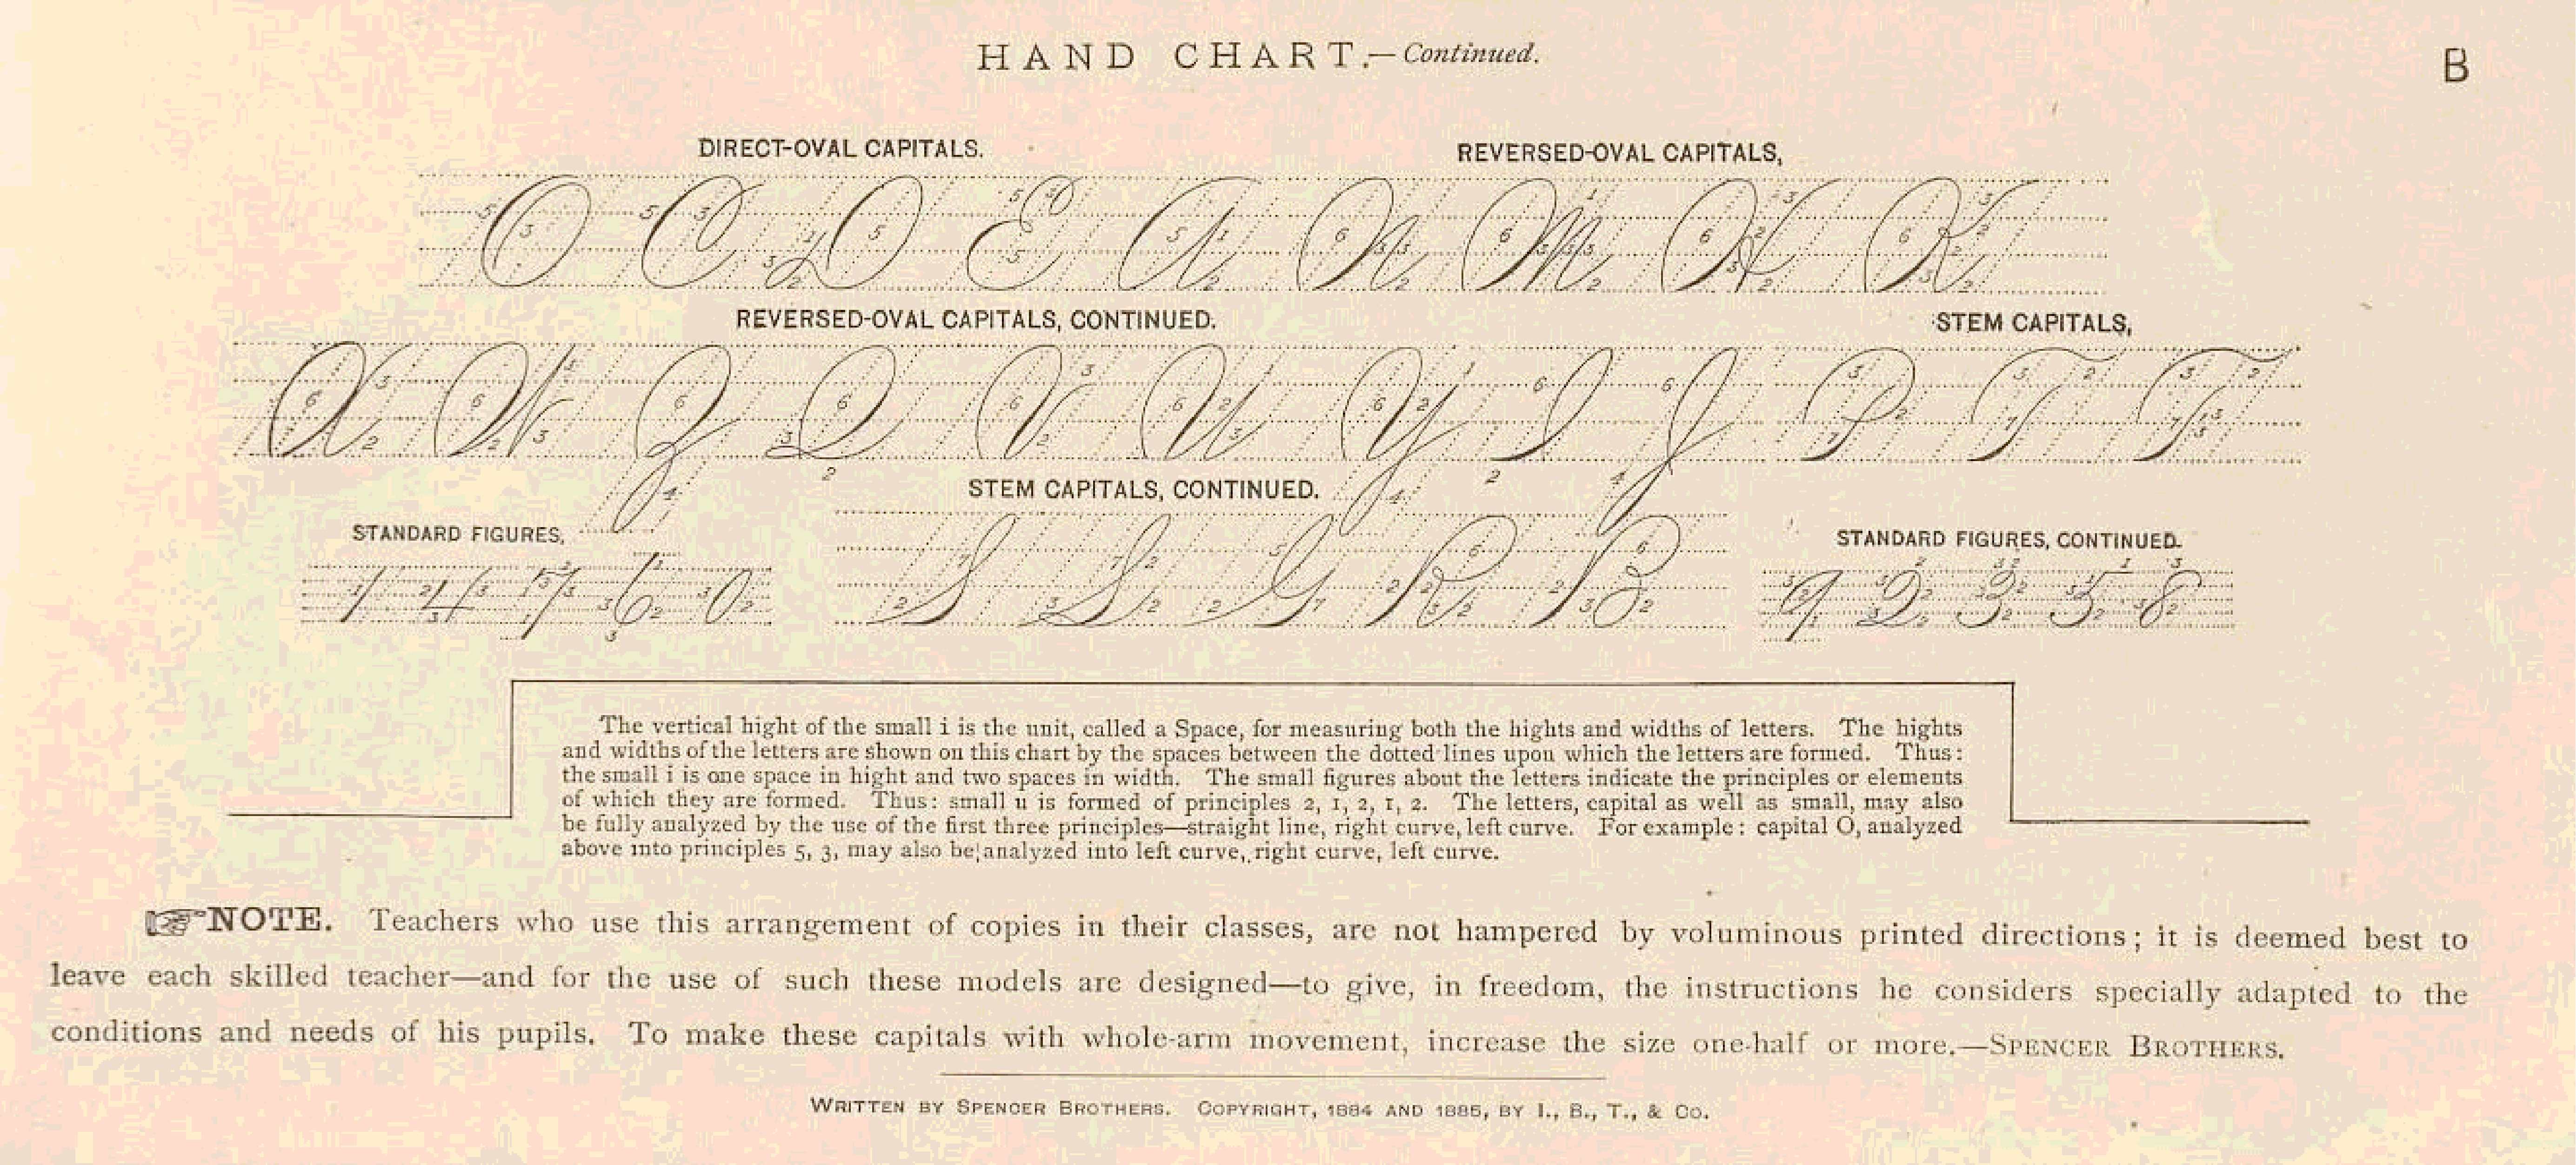 HAND CHART.—Continued.
B
DIRECT-OVAL CAPITALS.
REVERSED-OVAL CAPITALS,
O C D E A N M H K
REVERSED-OVAL CAPITALS, CONTINUED.
STEM CAPITALS,
X W Z Q V U Y I J P T F
STEM CAPITALS, CONTINUED.
STANDARD FIGURES,
STANDARD FIGURES, CONTINUED.
1 4 7 6 0
S L G R B
9 2 3 5 8
The vertical hight of the small i is the unit, called a Space, for measuring both the hights and widths of letters. The hights
and widths of the letters are shown on this chart by the spaces between the dotted lines upon which the letters are formed. Thus:
the small i is one space in hight and two spaces in width. The small figures about the letters indicate the principles or elements
of which they are formed. Thus: small u is formed of principles 2, 1, 2, 1, 2. The letters, capital as well as small, may also
be fully analyzed by the use of the first three principles—straight line, right curve, left curve. For example: capital O, analyzed
above into principles 5, 3, may also be analyzed into left curve, right curve, left curve.
☞NOTE. Teachers who use this arrangement of copies in their classes, are not hampered by voluminous printed directions; it is deemed best to
leave each skilled teacher—and for the use of such these models are designed—to give, in freedom, the instructions he considers specially adapted to the
conditions and needs of his pupils. To make these capitals with whole-arm movement, increase the size one-half or more.—SPENCER BROTHERS.
WRITTEN BY SPENCER BROTHERS. COPYRIGHT, 1884 AND 1885, BY I., B., T., & CO.